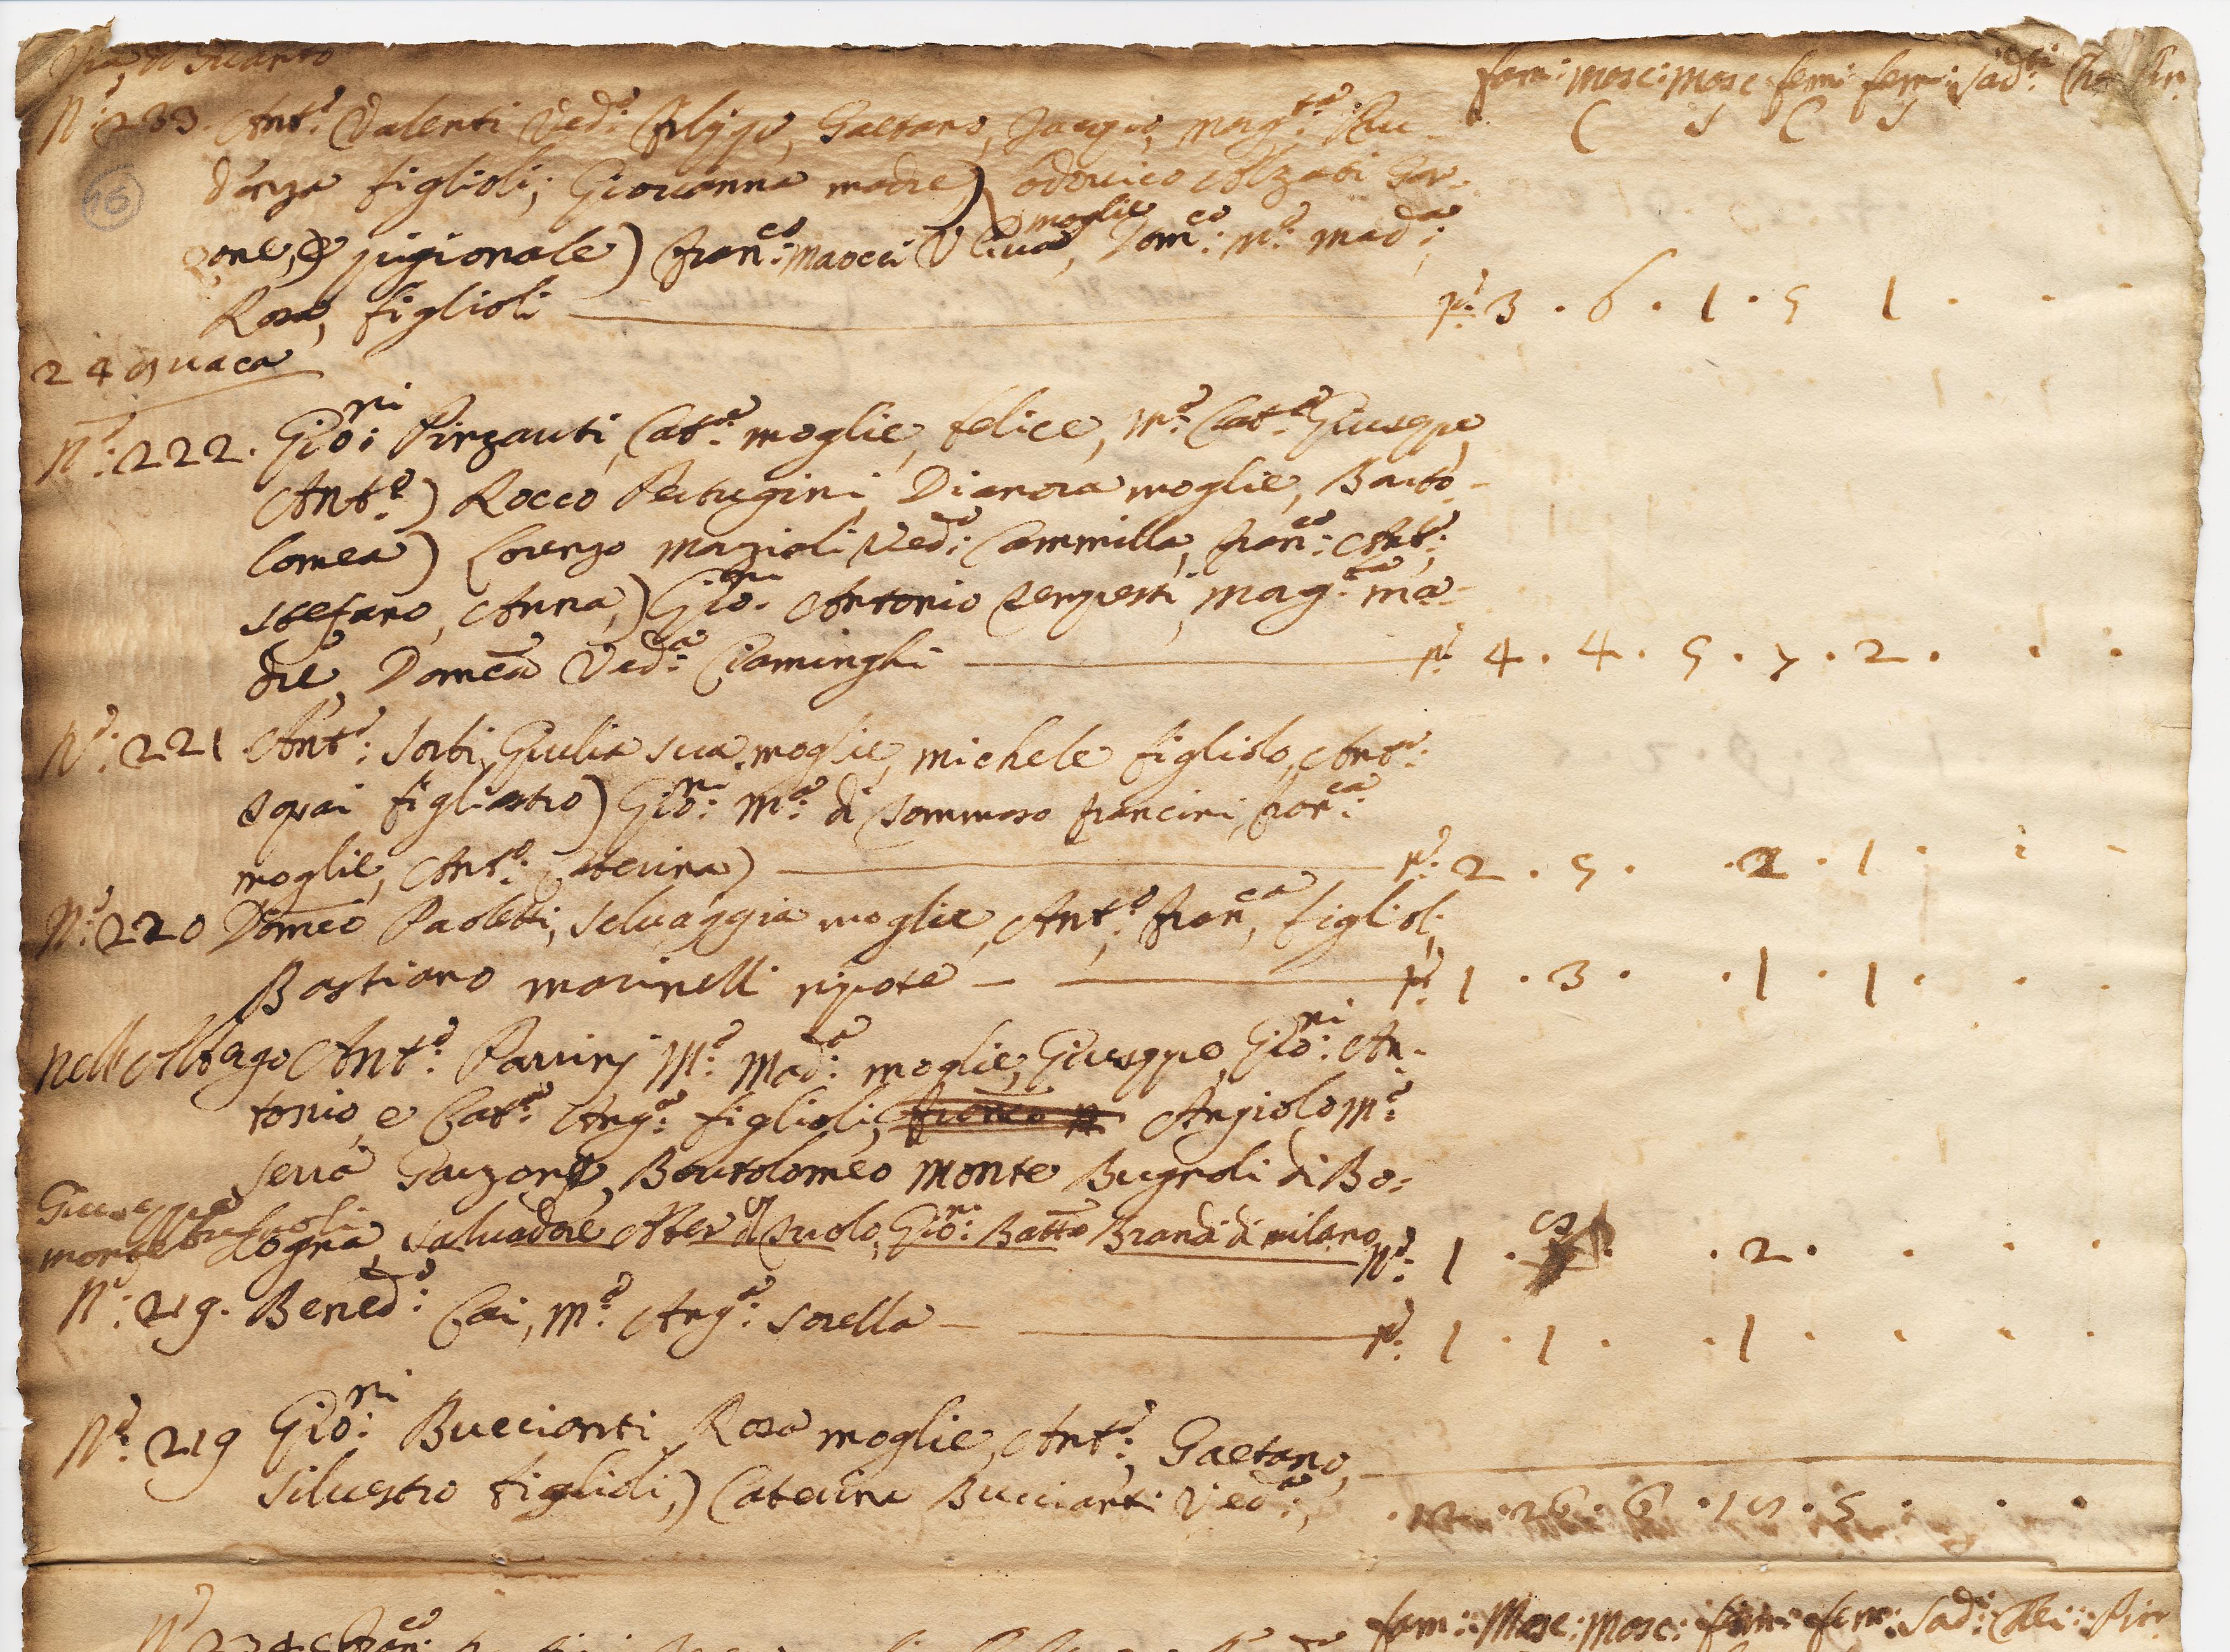 fam: Masc: Masc femi fem: Sad:ti
C S C S
N.o 233. Ant.o Valenti Ved.o Filippo, Gaetano, Jacopo, Marg.ta Pru-
16
denza figlioli; Giovanna madre) Lodovico Gar-
zone, e pigionale) Fran.co: Maocci moglie, Dom.co: M.a Mad.a:
Rosa, figlioli p.o 3 . 6 . 1 . 5 1 . . .
24 Guaca
N.o: 222. Gio:ni Pirzauti, Cat.a moglie, felice, M.a Cat.a Giuseppe,
Ant.o) Rocco Perugini, Dianora moglie, Barto-
lomea) Lorenzo Mazzioli Ved.o: Cammilla, Fran.co: Ant.o:
Stefano, Anna,) Gio:ni Antonio Tempesti, Marg.ta ma-
dre, Domca Ved.a: Ciaminghi p.o 4 . 4 . 5 . 7 . 2 . . .
N.o: 221 Ant.o: Sorbi, Giulia sua moglie, Michele figliolo, Ant.o:
Topai figliastro) Gio:ni M.a: di Tommaso francini, fran.ca:
moglie, Ant.o: Caterina) p.o: 2 . 5 . . 2 . 1 .
N.o: 220 Domco Paoletti, Selvaggia moglie, Ant.o: Fran.ca, figlioli,
Bastiano Marinelli nipote p.o: 1 . 3 . . 1 . 1 . . .
Nello Albago Ant.o: Parrinj M.a: Mad.a: moglie, Giuseppe, Gio:ni An-
tonio, e Cat.a Ang.a: figlioli, Angiolo M.a:
Serra Garzone, Bartolomeo Monte Bugnoli di Bo:
Giuseppe
Monte bugnoli
logna, Salvadore Ater d Suolo, Gio:ni Batta Brandi di Milano N.o: 1 . 5 . . 2 . . . .
N.o: 219. Bened.o: Cai, M.a: Ang.a: Sorella p.o: 1 . 1 . . 1 . . . .
N.o: 219 Gio:ni Buccianti Rosa moglie, Ant.o:, Gaetano,
Silvestro figlioli,) Caterina Buccianti Ved.a:,
. 12 . 26 . 6 . 19 . 5 . . .
fam: Masc: Masc: fem: fem: Sad: